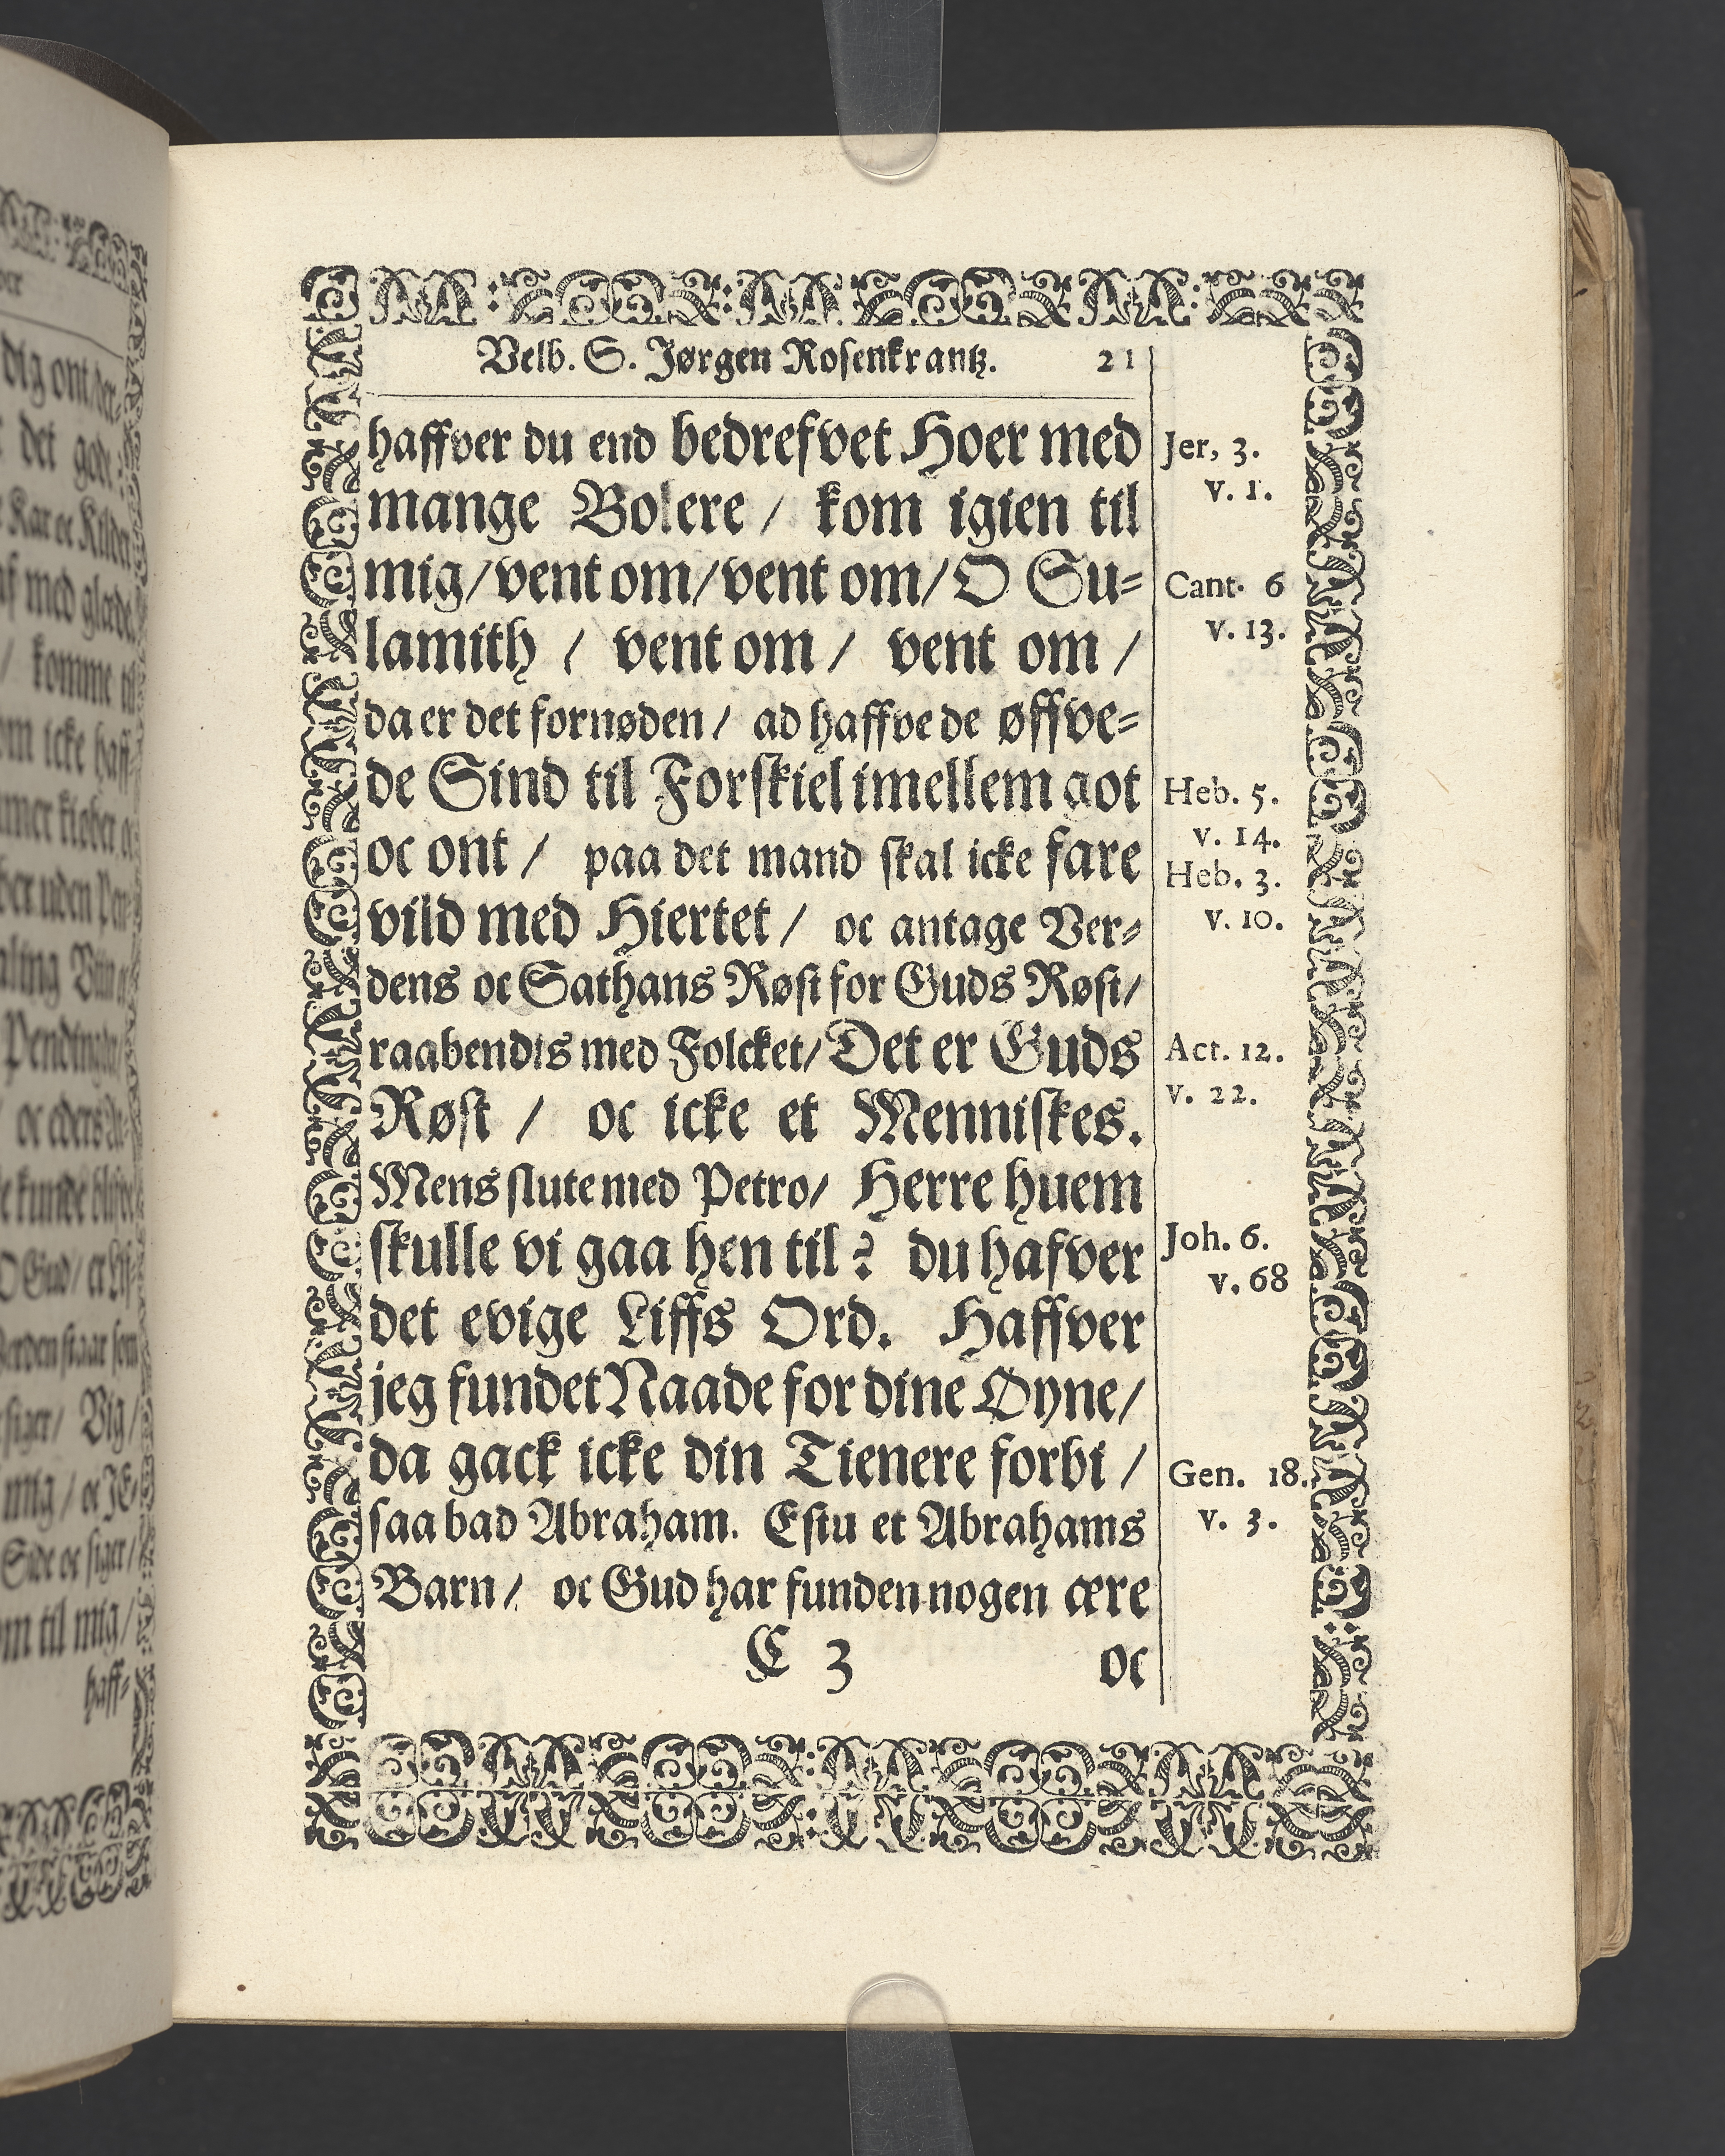 Velb. S. Jørgen Rosenkrantz. 21
haffver du end bedrefvet Hoer med
mange Bolere / kom igien til
mig/vent om/vent om/O Su=
lamith / vent om / vent om /
da er det fornøden/ ad haffve de øffve=
de Sind til Forskiel imellem got
oc ont / paa det mand skal icke fare
vild med Hiertet / oc antage Ver=
dens oc Sathans Røst for Guds Røst/
raabendis med Folcket/Det er Guds
Røst / oc icke et Menniskes.
Mens slute med Petro/ Herre huem
skulle vi gaa hen til? du hafver
det evige Liffs Ord. Haffver
jeg fundet Naade for dine Øyne/
da gack icke din Tienere forbi /
saa bad Abraham. Estu et Abrahams
Barn/ oc Gud har funden nogen ære
C 3 oc
Jer, 3.
v. 1.
Cant. 6
v. 13.
Heb. 5.
v. 14.
Heb. 3.
v. 10.
Act. 12.
v. 22.
Joh. 6.
v. 68
Gen. 18.
v. 3.